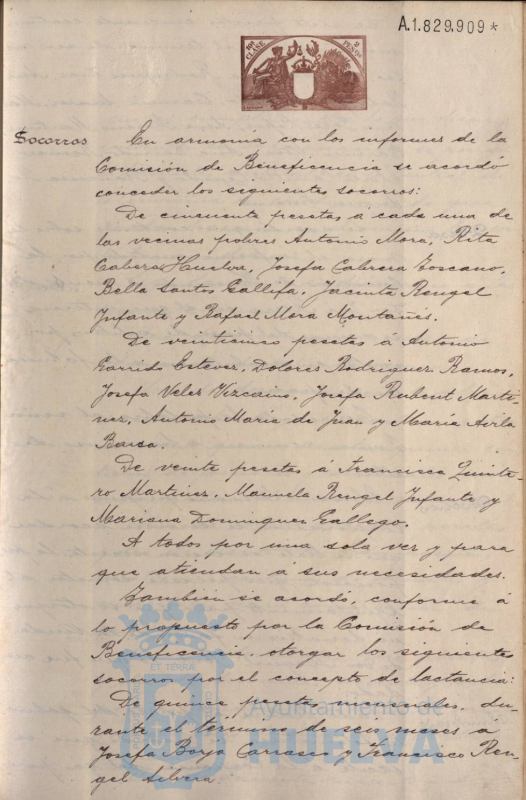 A.1.829.909*
10ª CLASE
2 PESETAS
Socorros
En armonía con los informes de la
Comisión de Beneficencia se acordó
conceder los siguientes socorros:
De cincuenta pesetas á cada una de
las vecinas pobres Antonio Mora, Rita
Cabera Huelva, Josefa Cabrera Toscano,
Bella Santos Gallifa, Jacinta Rengel
Infante y Rafael Mora Montañés.
De veinticinco pesetas á Antonio
Garrido Estevez, Dolores Rodriguez Ramos,
Josefa Velez Vizcaino, Josefa Rubent Marti-
nez, Antonio Maria de Juan y María Avila
Barco.
De veinte pesetas á Francisca Quinte-
ro Martinez, Manuela Rengel Infante y
Mariana Dominguez Gallego.
A todos por una sola vez y para
que atiendan á sus necesidades.
También se acordó, conforme á
lo propuesto por la Comisión de
Beneficencia, otorgar los siguientes
socorros por el concepto de lactancia:
De quince pesetas mensuales, du-
rante el término de seis meses á
Josefa Borja Carrasco y Francisco Ren-
gel Silvera.
ET TERRÆ
Ayuntamiento de
HUELVA